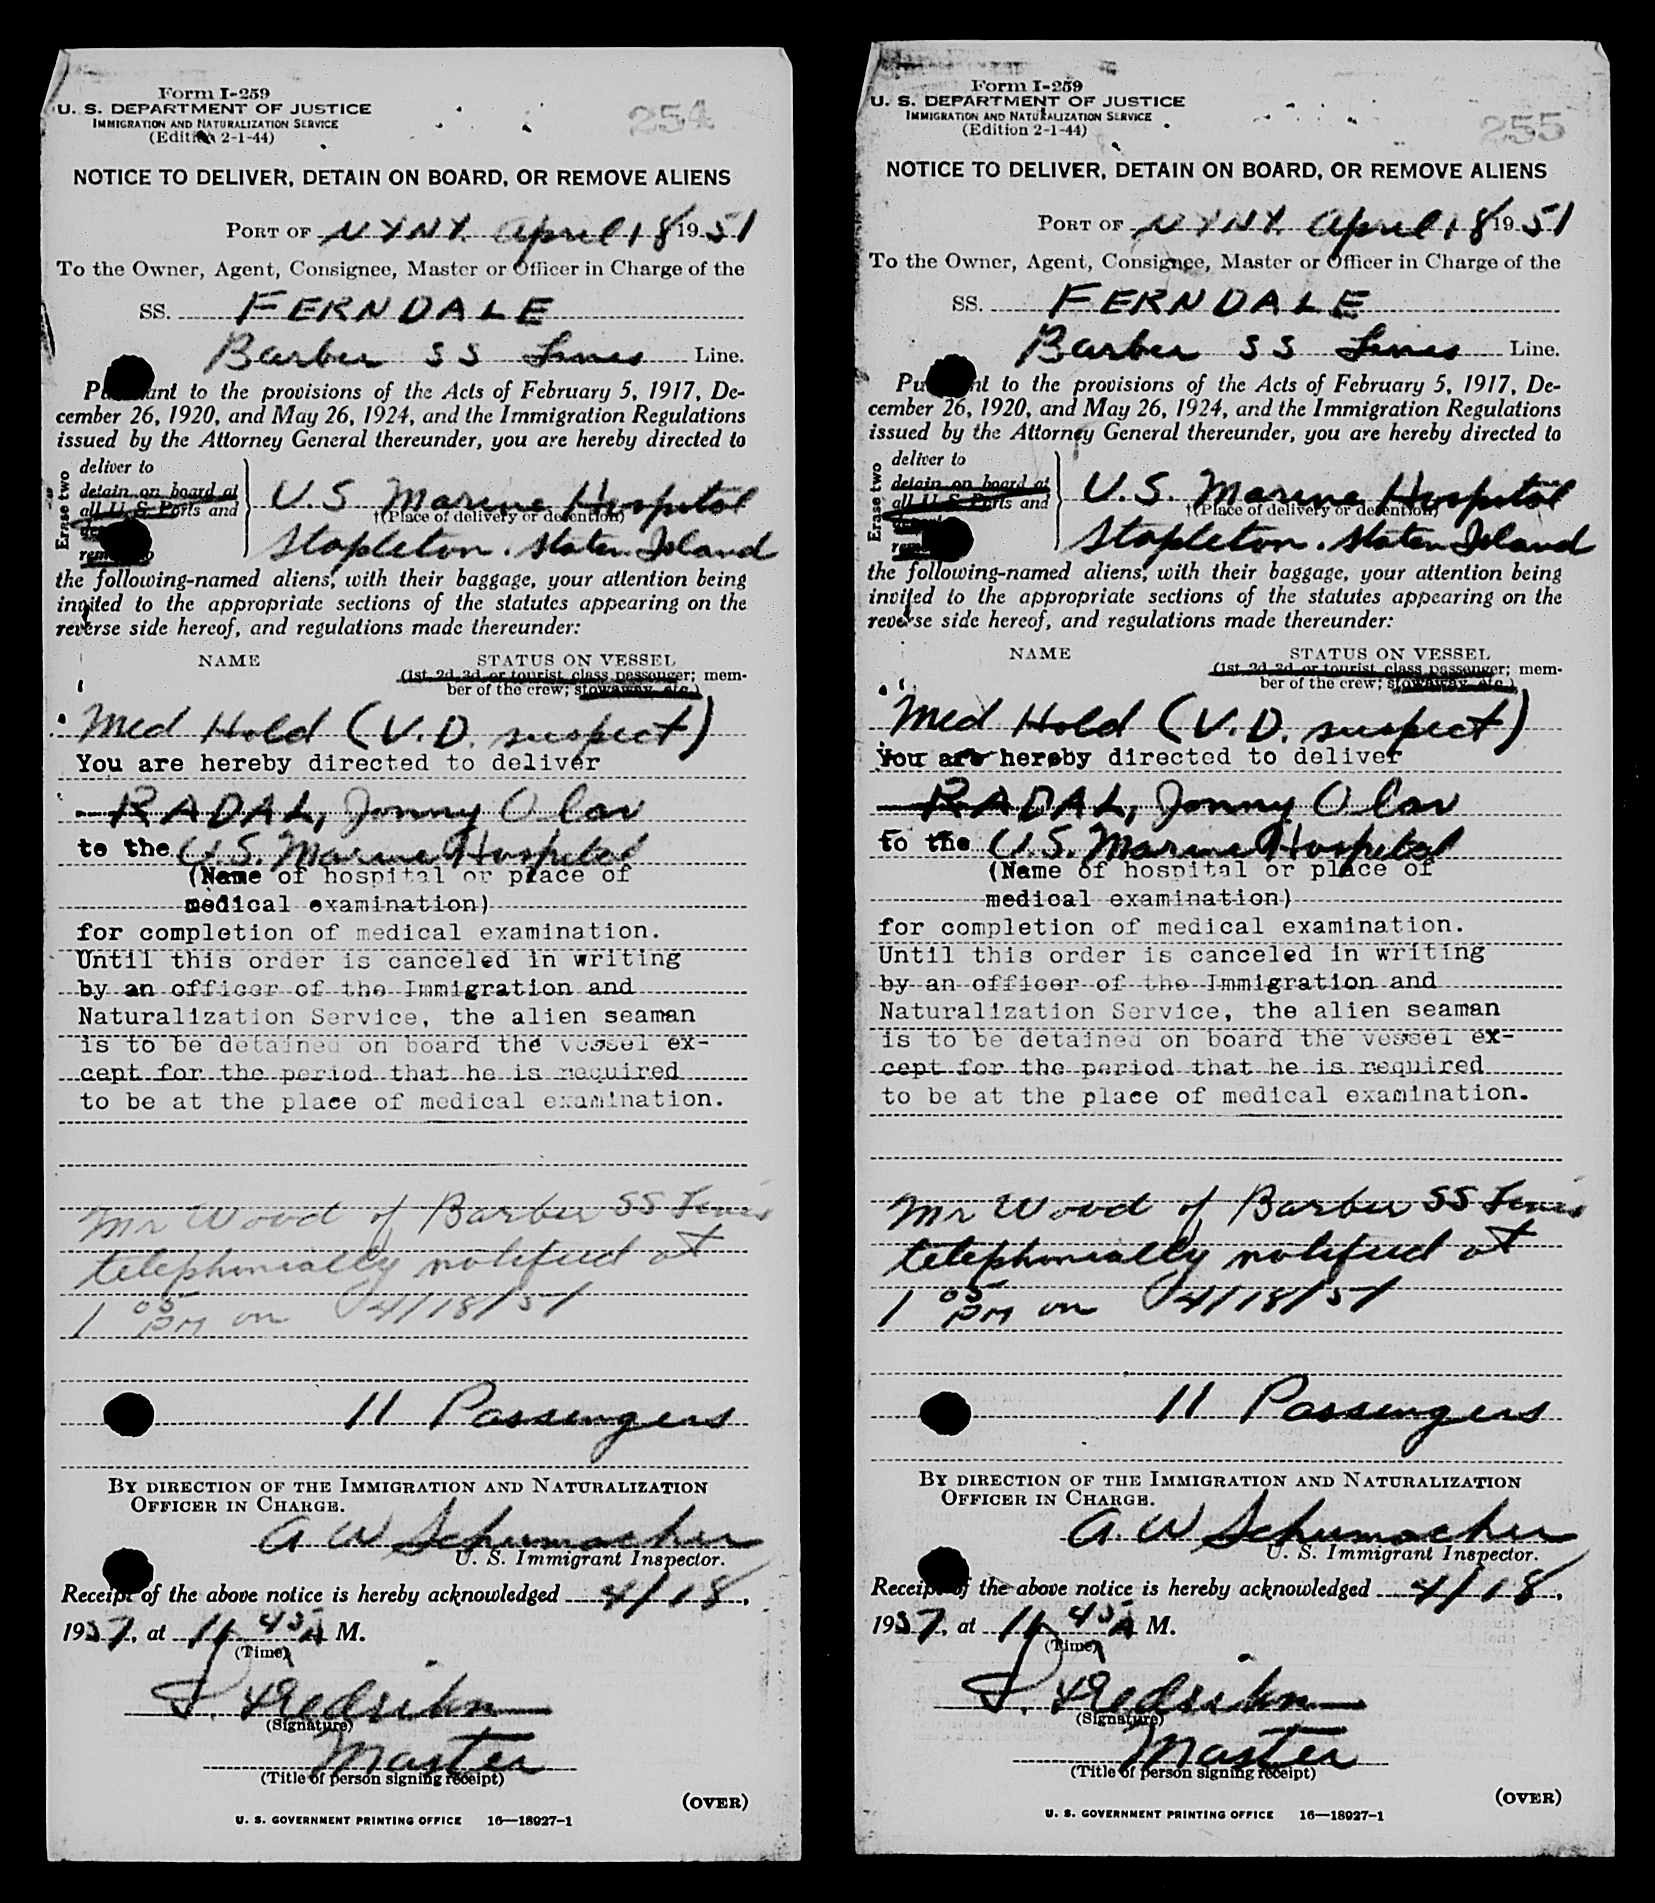 Form I-259
U. S. DEPARTMENT OF JUSTICE
IMMIGRATION AND NATURALIZATION SERVICE
(Edition 2-1-44)
254
NOTICE TO DELIVER, DETAIN ON BOARD, OR REMOVE ALIENS
PORT OF NYNY. April 18 1951
To the Owner, Agent, Consignee, Master or Officer in Charge of the
SS. FERNDALE
Barber SS Lines Line.
Pursuant to the provisions of the Acts of February 5, 1917, De-
cember 26, 1920, and May 26, 1924, and the Immigration Regulations
issued by the Attorney General thereunder, you are hereby directed to
Erase two
deliver to
detain on board at
all U. S. Ports and
U.S Marine Hospital
†(Place of delivery or detention)
Stapleton. Staten Island
the following-named aliens, with their baggage, your attention being
invited to the appropriate sections of the statutes appearing on the
reverse side hereof, and regulations made thereunder:
NAME STATUS ON VESSEL
(1st, 2d, 3d, or tourist class passenger; mem-
ber of the crew; stowaway, etc.)
Med Hold (V.D. suspect)
You are hereby directed to deliver
RADAL, Jonny Olav
to the U.S. Marine Hospital
(Name of hospital or place of
medical examination)
for completion of medical examination.
Until this order is canceled in writing
by an officer of the Immigration and
Naturalization Service, the alien seaman
is to be detained on board the vessel ex-
cept for the period that he is required
to be at the place of medical examination.
Mr Wood of Barber SS Lines
telephonically notified at
1 05 PM on 4/18/51
11 Passengers
BY DIRECTION OF THE IMMIGRATION AND NATURALIZATION
OFFICER IN CHARGE.
A W Schumacher
U. S. Immigrant Inspector.
Receipt of the above notice is hereby acknowledged 4/18,
1951, at 11 45 A M.
(Time)
(Signature)
Master
(Title of person signing receipt)
(OVER)
U. S. GOVERNMENT PRINTING OFFICE 16—18927-1
Form I-259
U. S. DEPARTMENT OF JUSTICE
IMMIGRATION AND NATURALIZATION SERVICE
(Edition 2-1-44)
255
NOTICE TO DELIVER, DETAIN ON BOARD, OR REMOVE ALIENS
PORT OF NYNY. April 18 1951
To the Owner, Agent, Consignee, Master or Officer in Charge of the
SS. FERNDALE
Barber SS Lines Line.
Pursuant to the provisions of the Acts of February 5, 1917, De-
cember 26, 1920, and May 26, 1924, and the Immigration Regulations
issued by the Attorney General thereunder, you are hereby directed to
Erase two
deliver to
detain on board at
all U. S. Ports and
U.S. Marine Hospital
†(Place of delivery or detention)
Stapleton. Staten Island
the following-named aliens, with their baggage, your attention being
invited to the appropriate sections of the statutes appearing on the
reverse side hereof, and regulations made thereunder:
NAME STATUS ON VESSEL
(1st, 2d, 3d, or tourist class passenger; mem-
ber of the crew; stowaway, etc.)
Med Hold (V.D. suspect)
You are hereby directed to deliver
RADAL, Jonny Olav
to the U.S. Marine Hospital
(Name of hospital or place of
medical examination)
for completion of medical examination.
Until this order is canceled in writing
by an officer of the Immigration and
Naturalization Service, the alien seaman
is to be detained on board the vessel ex-
cept for the period that he is required
to be at the place of medical examination.
Mr Wood of Barber SS Lines
telephonically notified at
1 05 PM on 4/18/51
11 Passengers
BY DIRECTION OF THE IMMIGRATION AND NATURALIZATION
OFFICER IN CHARGE.
A. W Schumacher
U. S. Immigrant Inspector.
Receipt of the above notice is hereby acknowledged 4/18,
1951, at 11 45 A M.
(Time)
(Signature)
Master
(Title of person signing receipt)
(OVER)
U. S. GOVERNMENT PRINTING OFFICE 16—18927-1